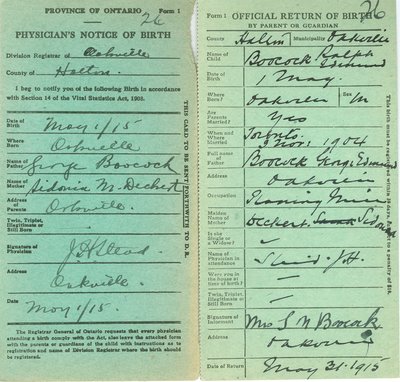 PROVINCE OF ONTARIO. Form 1
26
PHYSICIAN'S NOTICE OF BIRTH
Division Registrar of Oakville
County of Halton.
I beg to notify you of the following Birth in accordance
with Section 14 of the Vital Statistics Act, 1908.
Date of Birth May 1/15
Where Born Oakville
Name of Father George Boocock
Name of Mother Sidonia M. Deckert
Address of Parents Oakville.
Twin, Triplet, Illegitimate or Still Born
Signature of Physician
Address Oakville
Date May 1/15.
The Registrar General of Ontario requests that every physician
attending a birth comply with the Act, also leave the attached form
with the parents or guardians of the child with instructions as to
registration and name of Division Registrar where the birth should
be registered.
THIS CARD TO BE SENT FORTHWITH TO D.R.
Form 1 OFFICIAL RETURN OF BIRTH
26
BY PARENT OR GUARDIAN
County Halton Municipality Oakville
Name of Child Boocock Ralph Edmund
Date of Birth 1 May
Where Born? Oakville Sex M
Are Parents Married? Yes
When and Where Married Toronto 1904
Full name of Father Boocock Edmund
Address Oakville
Occupation
Maiden Name of Mother Deckert,
Is she Single or a Widow?
Name of Physician in attendance
Were you in the house at time of birth?
Twin, Triplet, Illegitimate or Still Born
Signature of Informant Mrs Boocock
Address Oakville
Date of Return May 31. 1915